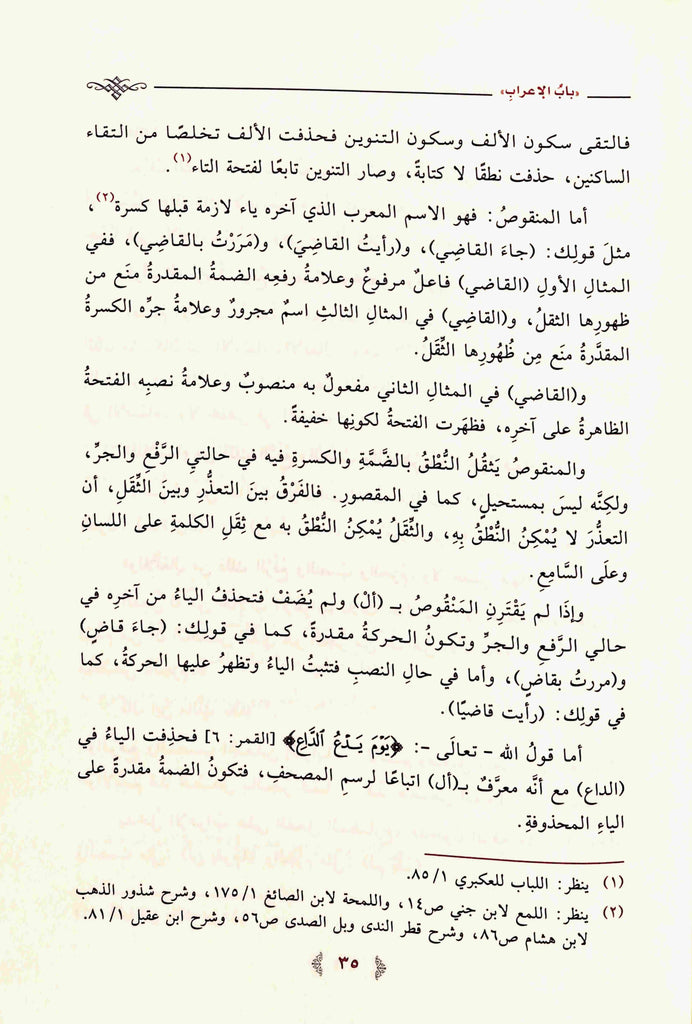 «بابُ الإعرابِ»
فالتقى سكون الألف وسكون التنوين فحذفت الألف تخلصًا من التقاء
الساكنين، حذفت نطقًا لا كتابةً، وصار التنوين تابعًا لفتحة التاء(١).
أما المنقوصُ: فهو الاسم المعرب الذي آخره ياء لازمة قبلها كسرة(٢)،
مثلَ قولِك: (جاءَ القاضِي)، و(رأيتُ القاضِيَ)، و(مَرَرْتُ بالقاضِي)، ففي
المثالِ الأولِ (القاضي) فاعلٌ مرفوعٌ وعلامةُ رفعِه الضمةُ المقدرةُ منَع من
ظهورِها الثقلُ، و(القاضِي) في المثالِ الثالثِ اسمٌ مجرورٌ وعلامةُ جرِّه الكسرةُ
المقدَّرةُ منَع مِن ظُهُورِها الثِّقَلُ.
و(القاضي) في المثالِ الثاني مفعولٌ به منصوبٌ وعلامةُ نصبِه الفتحةُ
الظاهرةُ على آخرِه، فظهَرت الفتحةُ لكونِها خفيفةً.
والمنقوصُ يَثقُلُ النُّطْقُ بالضَّمَّةِ والكسرةِ فيه في حالتيِ الرَّفْعِ والجرِّ،
ولكِنَّه ليسَ بمستحيلٍ، كما في المقصورِ. فالفَرْقُ بينَ التعذُّرِ وبينَ الثِّقَلِ، أن
التعذُّرَ لا يُمْكِنُ النُّطْقُ بِهِ، والثِّقَلُ يُمْكِنُ النُّطْقُ به مع ثِقَلِ الكلمةِ على اللسانِ
وعلَى السَّامِعِ.
وإذَا لم يَقْتَرِنِ المَنْقُوصُ بـ (ألْ) ولم يُضَفْ فتحذفُ الياءُ من آخرِه في
حالي الرَّفعِ والجرِّ وتكونُ الحركةُ مقدرةً، كما في قولِكَ: (جاءَ قاضٍ)
و(مررتُ بقاضٍ)، وأما في حالِ النصبِ فتثبتُ الياءُ وتظهرُ عليها الحركةُ، كما
في قولِكَ: (رأيت قاضيًا).
أما قولُ الله - تعالَى -: ﴿يَوْمَ يَدْعُ الدَّاعِ﴾ [القمر: ٦] فحذِفت الياءُ في
(الداع) مع أنَّه معرَّفٌ بـ(أل) اتباعًا لرسمِ المصحفِ، فتكونُ الضمةُ مقدرةً على
الياءِ المحذوفةِ.
(١) ينظر: اللباب للعكبري ٨٥/١.
(٢) ينظر: اللمع لابن جني ص١٤، واللمحة لابن الصائغ ١٧٥/١، وشرح شذور الذهب
لابن هشام ص٨٦، وشرح قطر الندى وبل الصدى ص٥٦، وشرح ابن عقيل ٨١/١.
٣٥